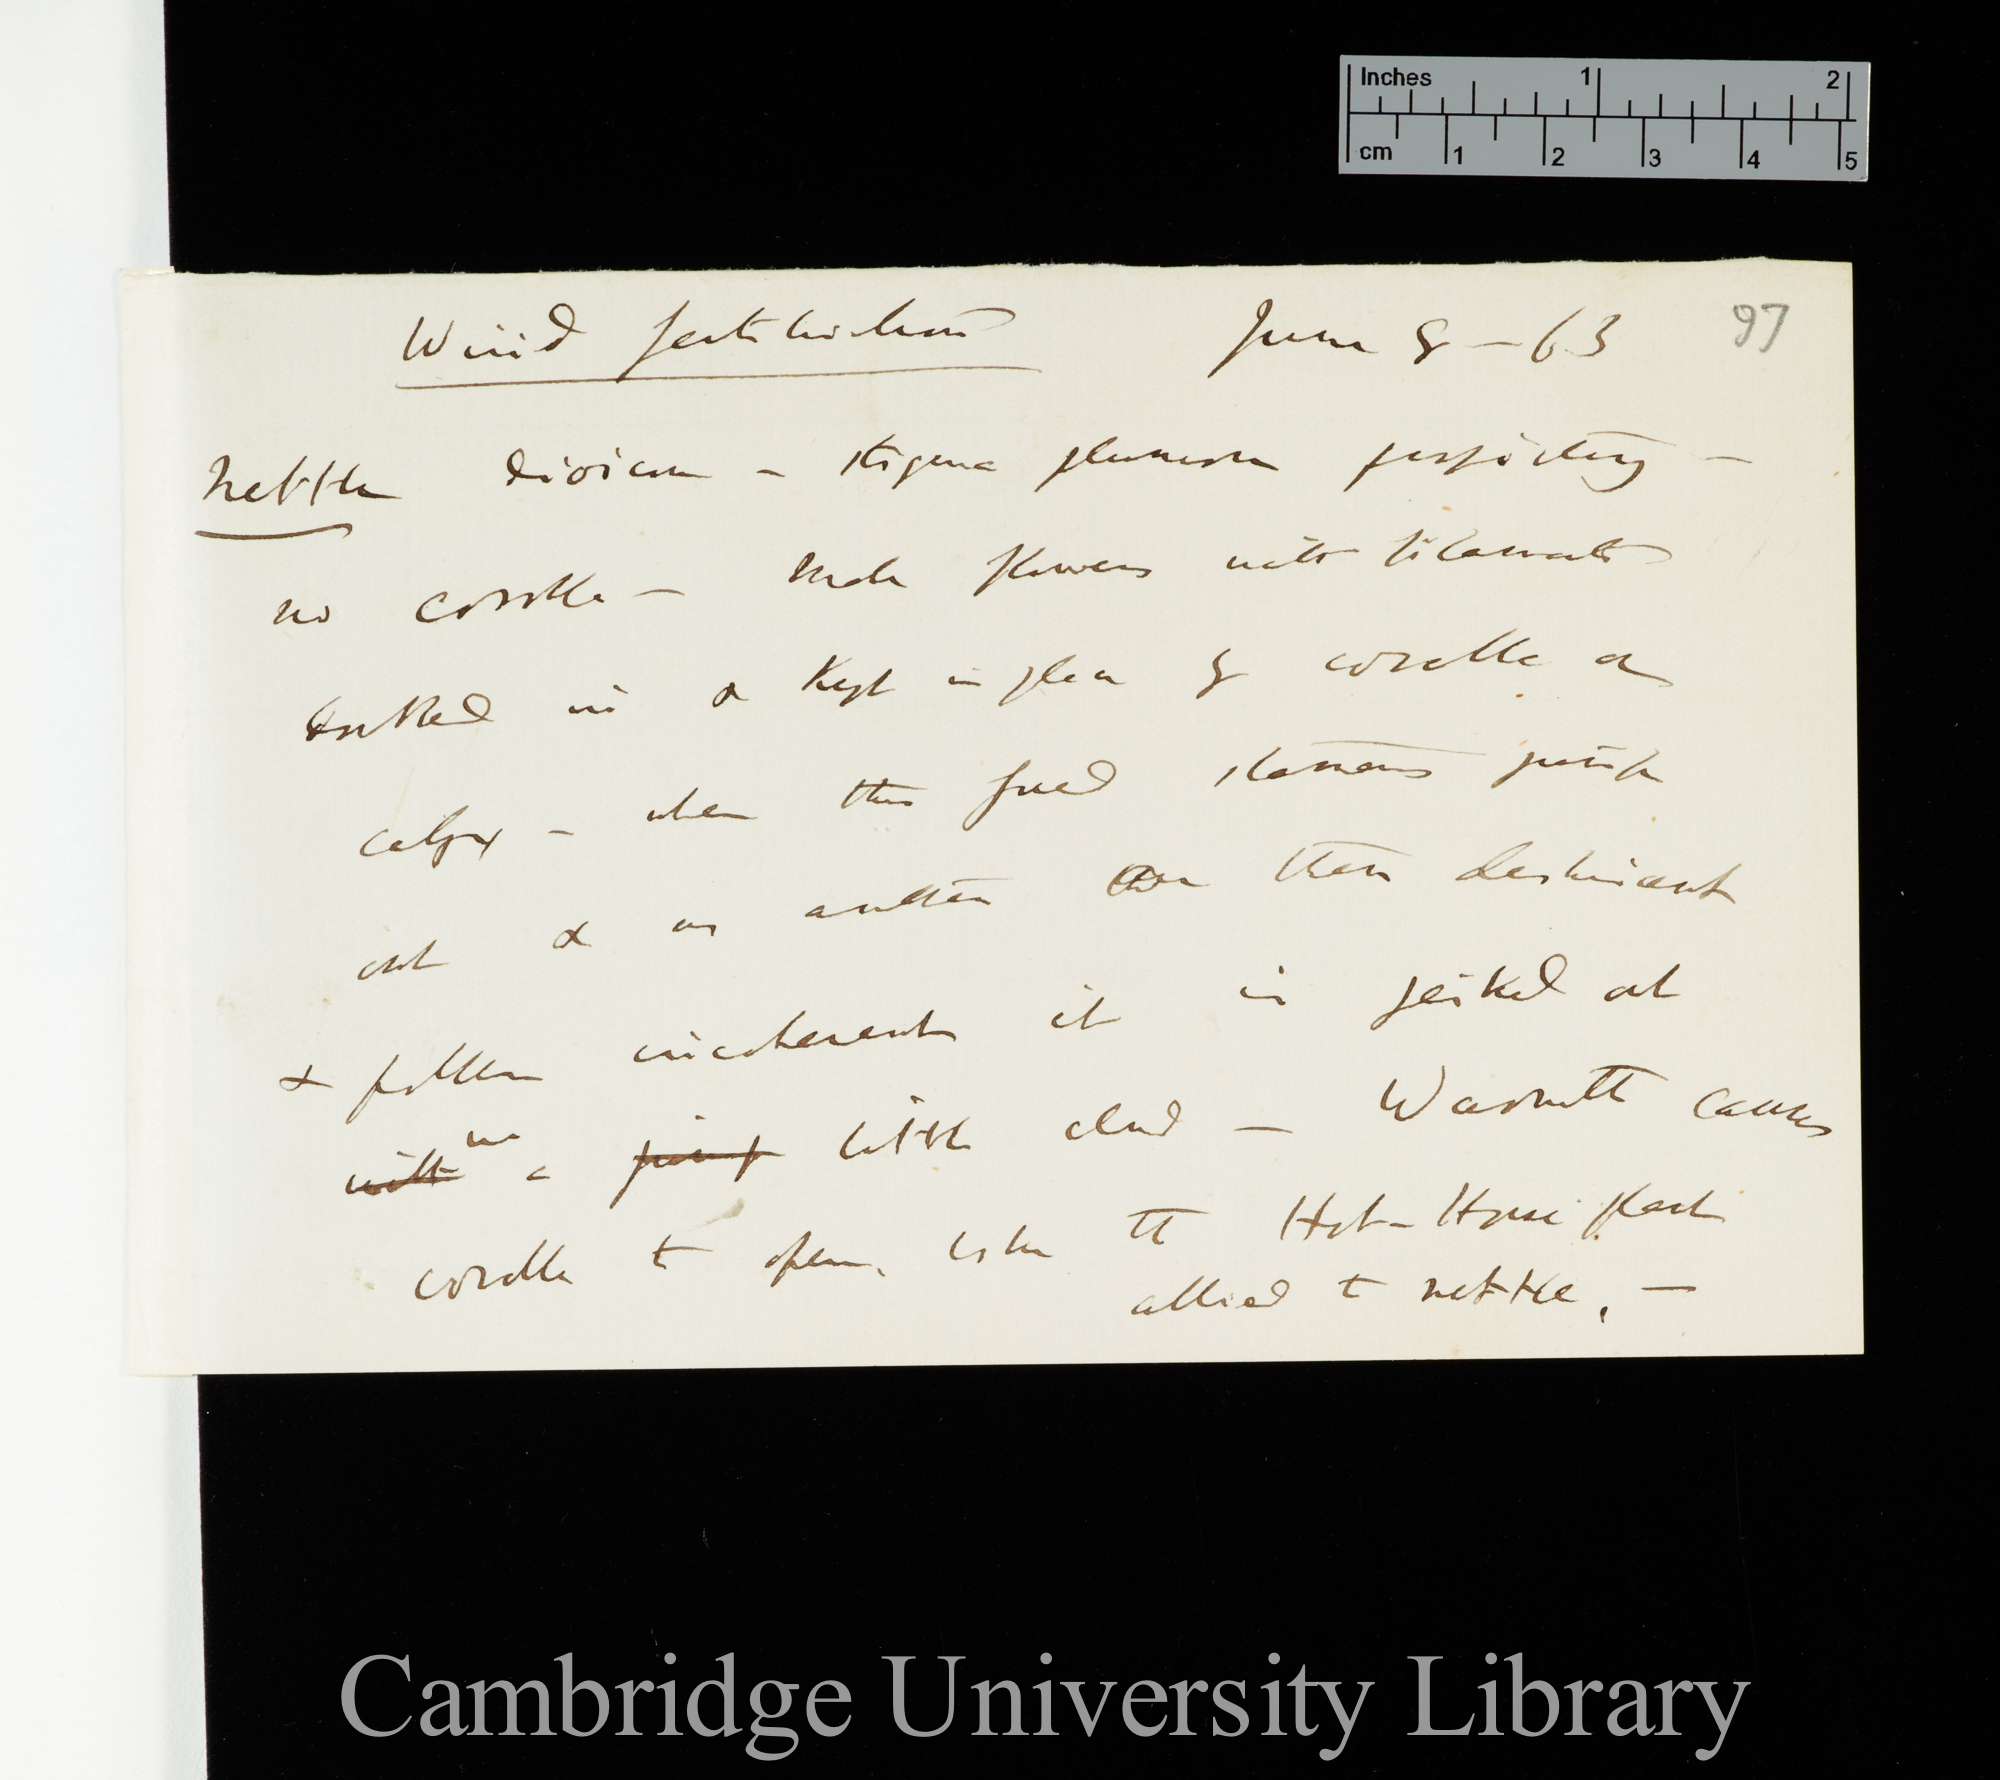 Inches 1 2
cm 1 2 3 4 5
Wind fertilisation June 8 — 63 97
Nettle dioicous — stigma plumose projecting —
no corolla — Male flowers with filaments
in & kept in place by corolla or
calyx — when thus freed stamens jump
out & as anther are then dehiscent
& pollen incoherent it is jerked out
with in a jump little cloud — Warmth causes
corolla to open, like the Hot-House plant
allied to nettle. —
Cambridge University Library